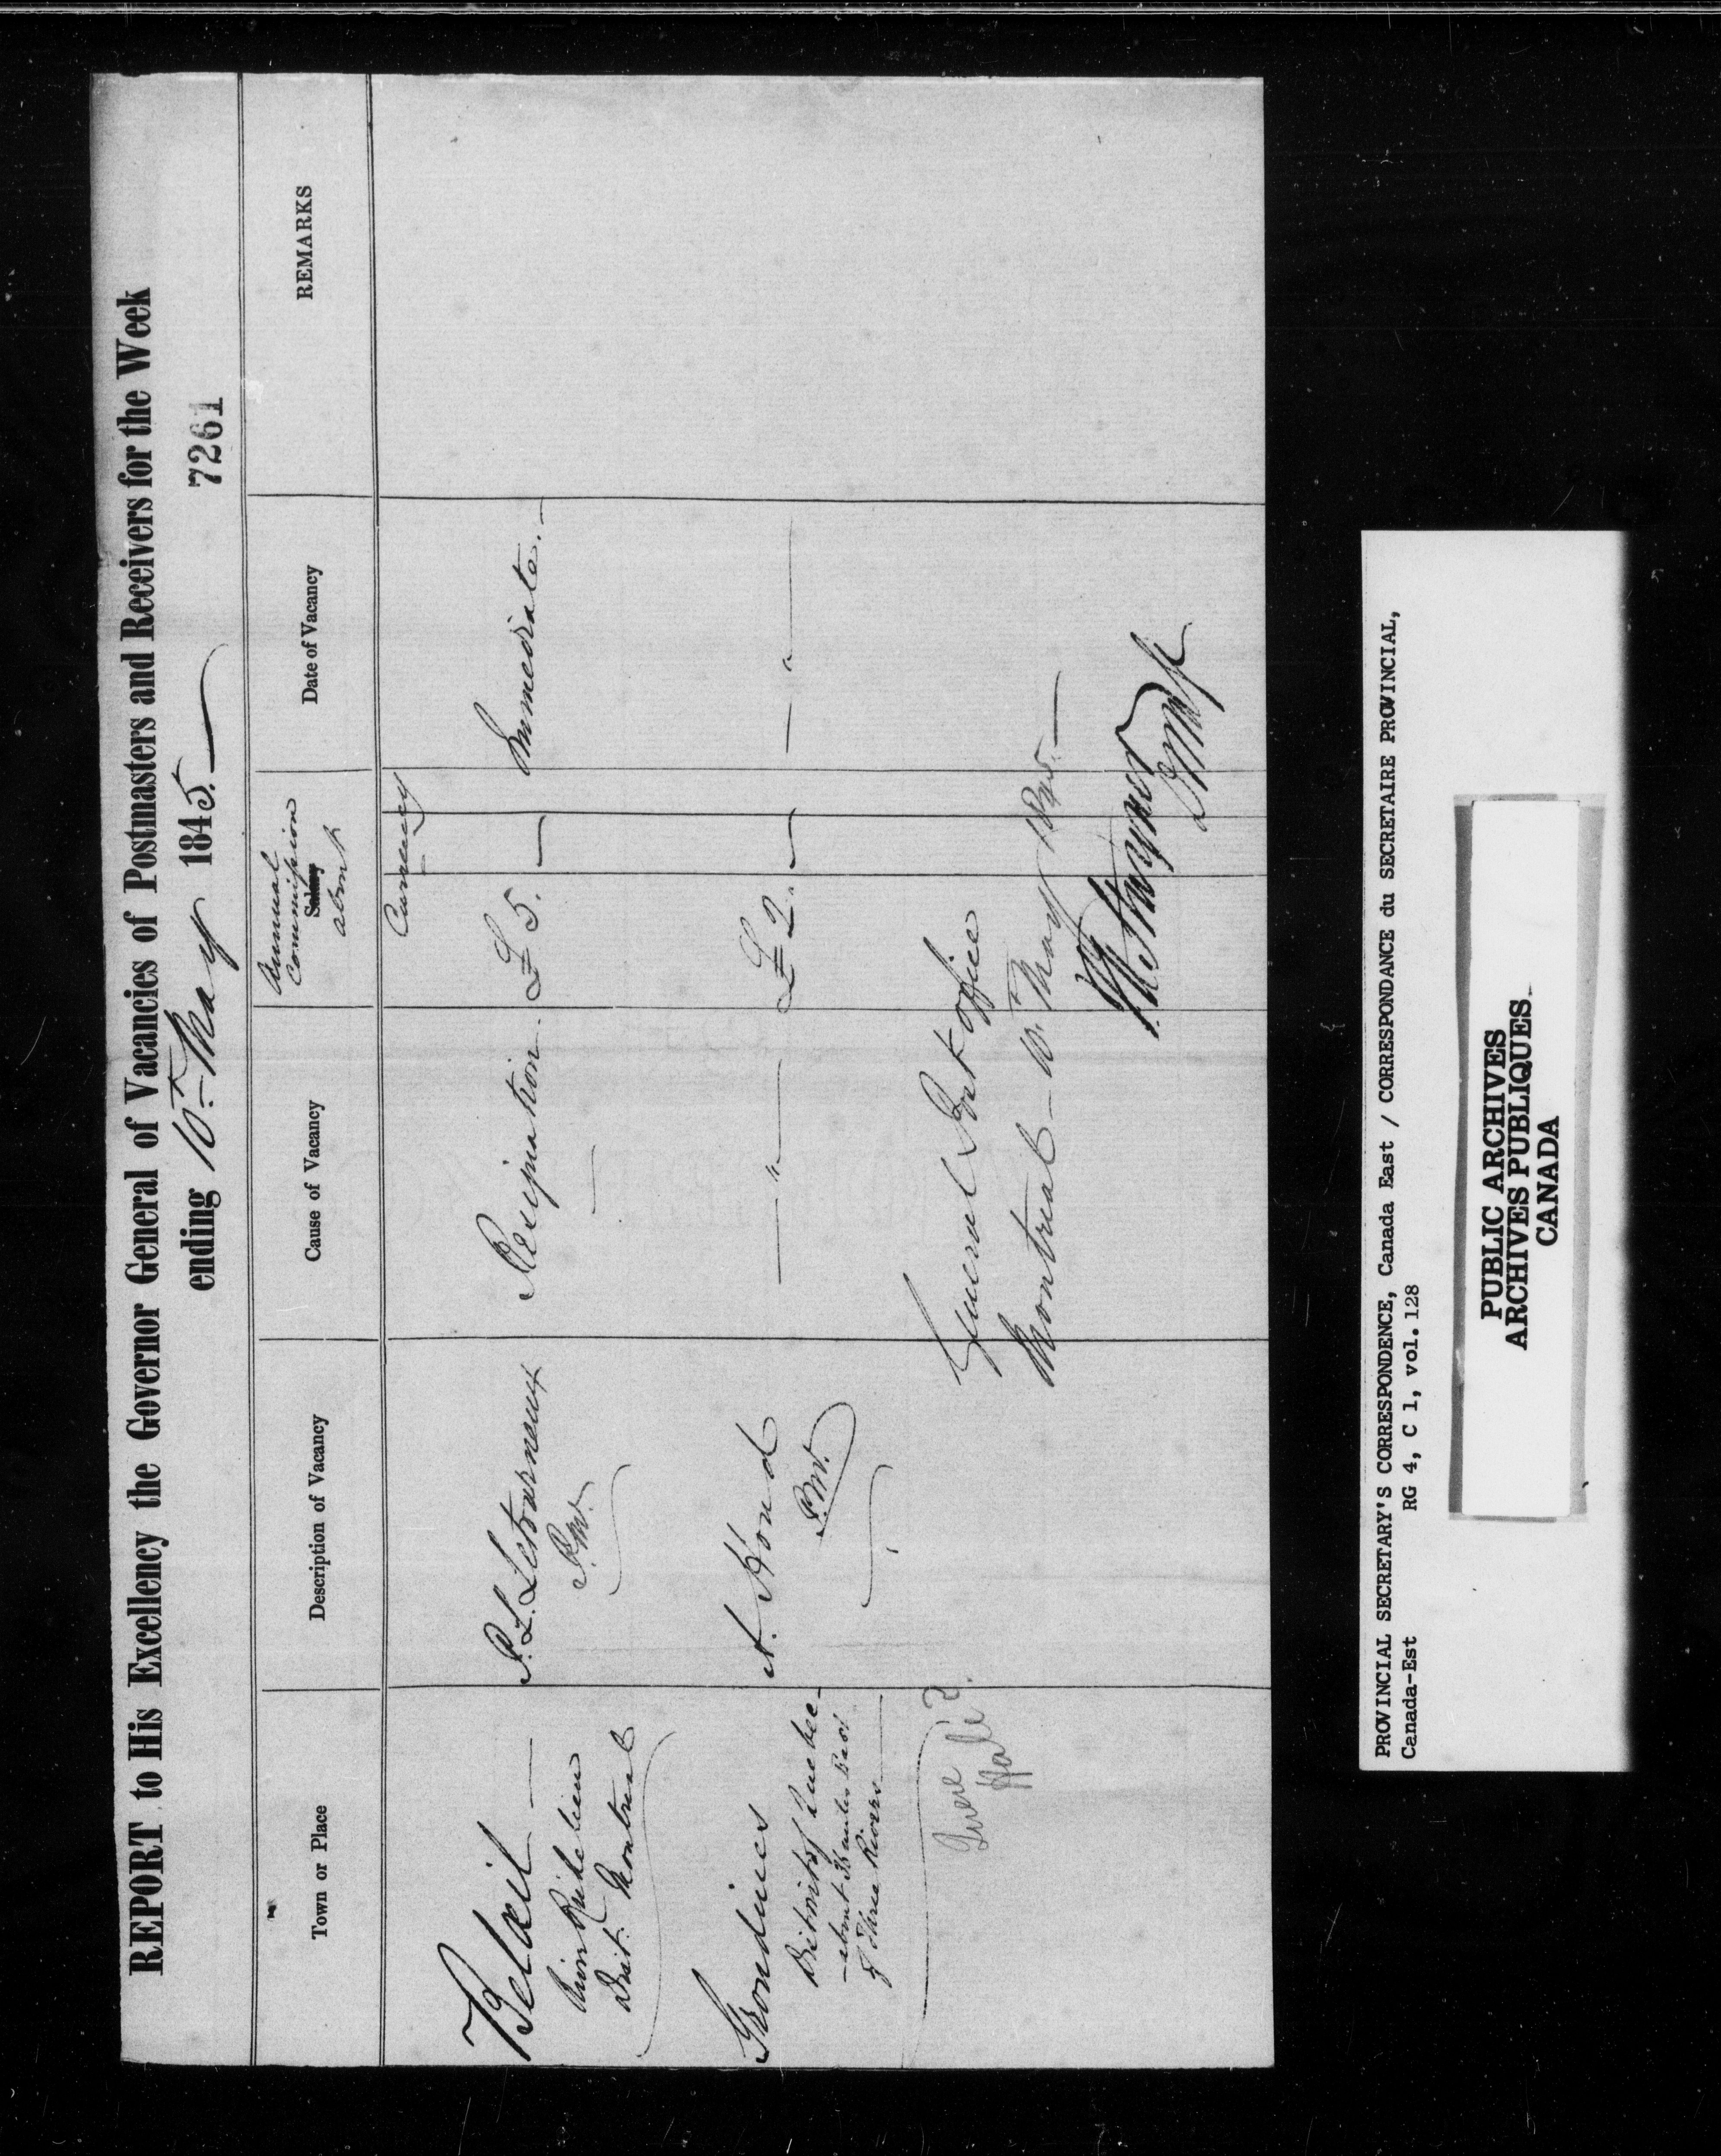 REPORT to His Excellency the Governor General of Vacancies of Postmasters and Receivers for the Week
ending 10th May 1845.
7261
Town or Place
Description of Vacancy
Cause of Vacancy
Annual
Commission
Salary
about
Date of Vacancy
REMARKS
Currency
Belœil
River Richelieu
Dist. Montreal
P. L. Letourneux
P.M.
Resignation.
£5.
Immediate.
Grondines
District of Quebec
about 36 miles East
of Three Rivers
A. Hond
P.M.
"
£2.
"
General Post Office
Montreal 10th May 1845.
TAStayner
DPMG
Hale?
PROVINCIAL SECRETARY'S CORRESPONDENCE, Canada East / CORRESPONDANCE du SECRETAIRE PROVINCIAL,
Canada-Est RG 4, C 1, vol. 128
PUBLIC ARCHIVES
ARCHIVES PUBLIQUES
CANADA